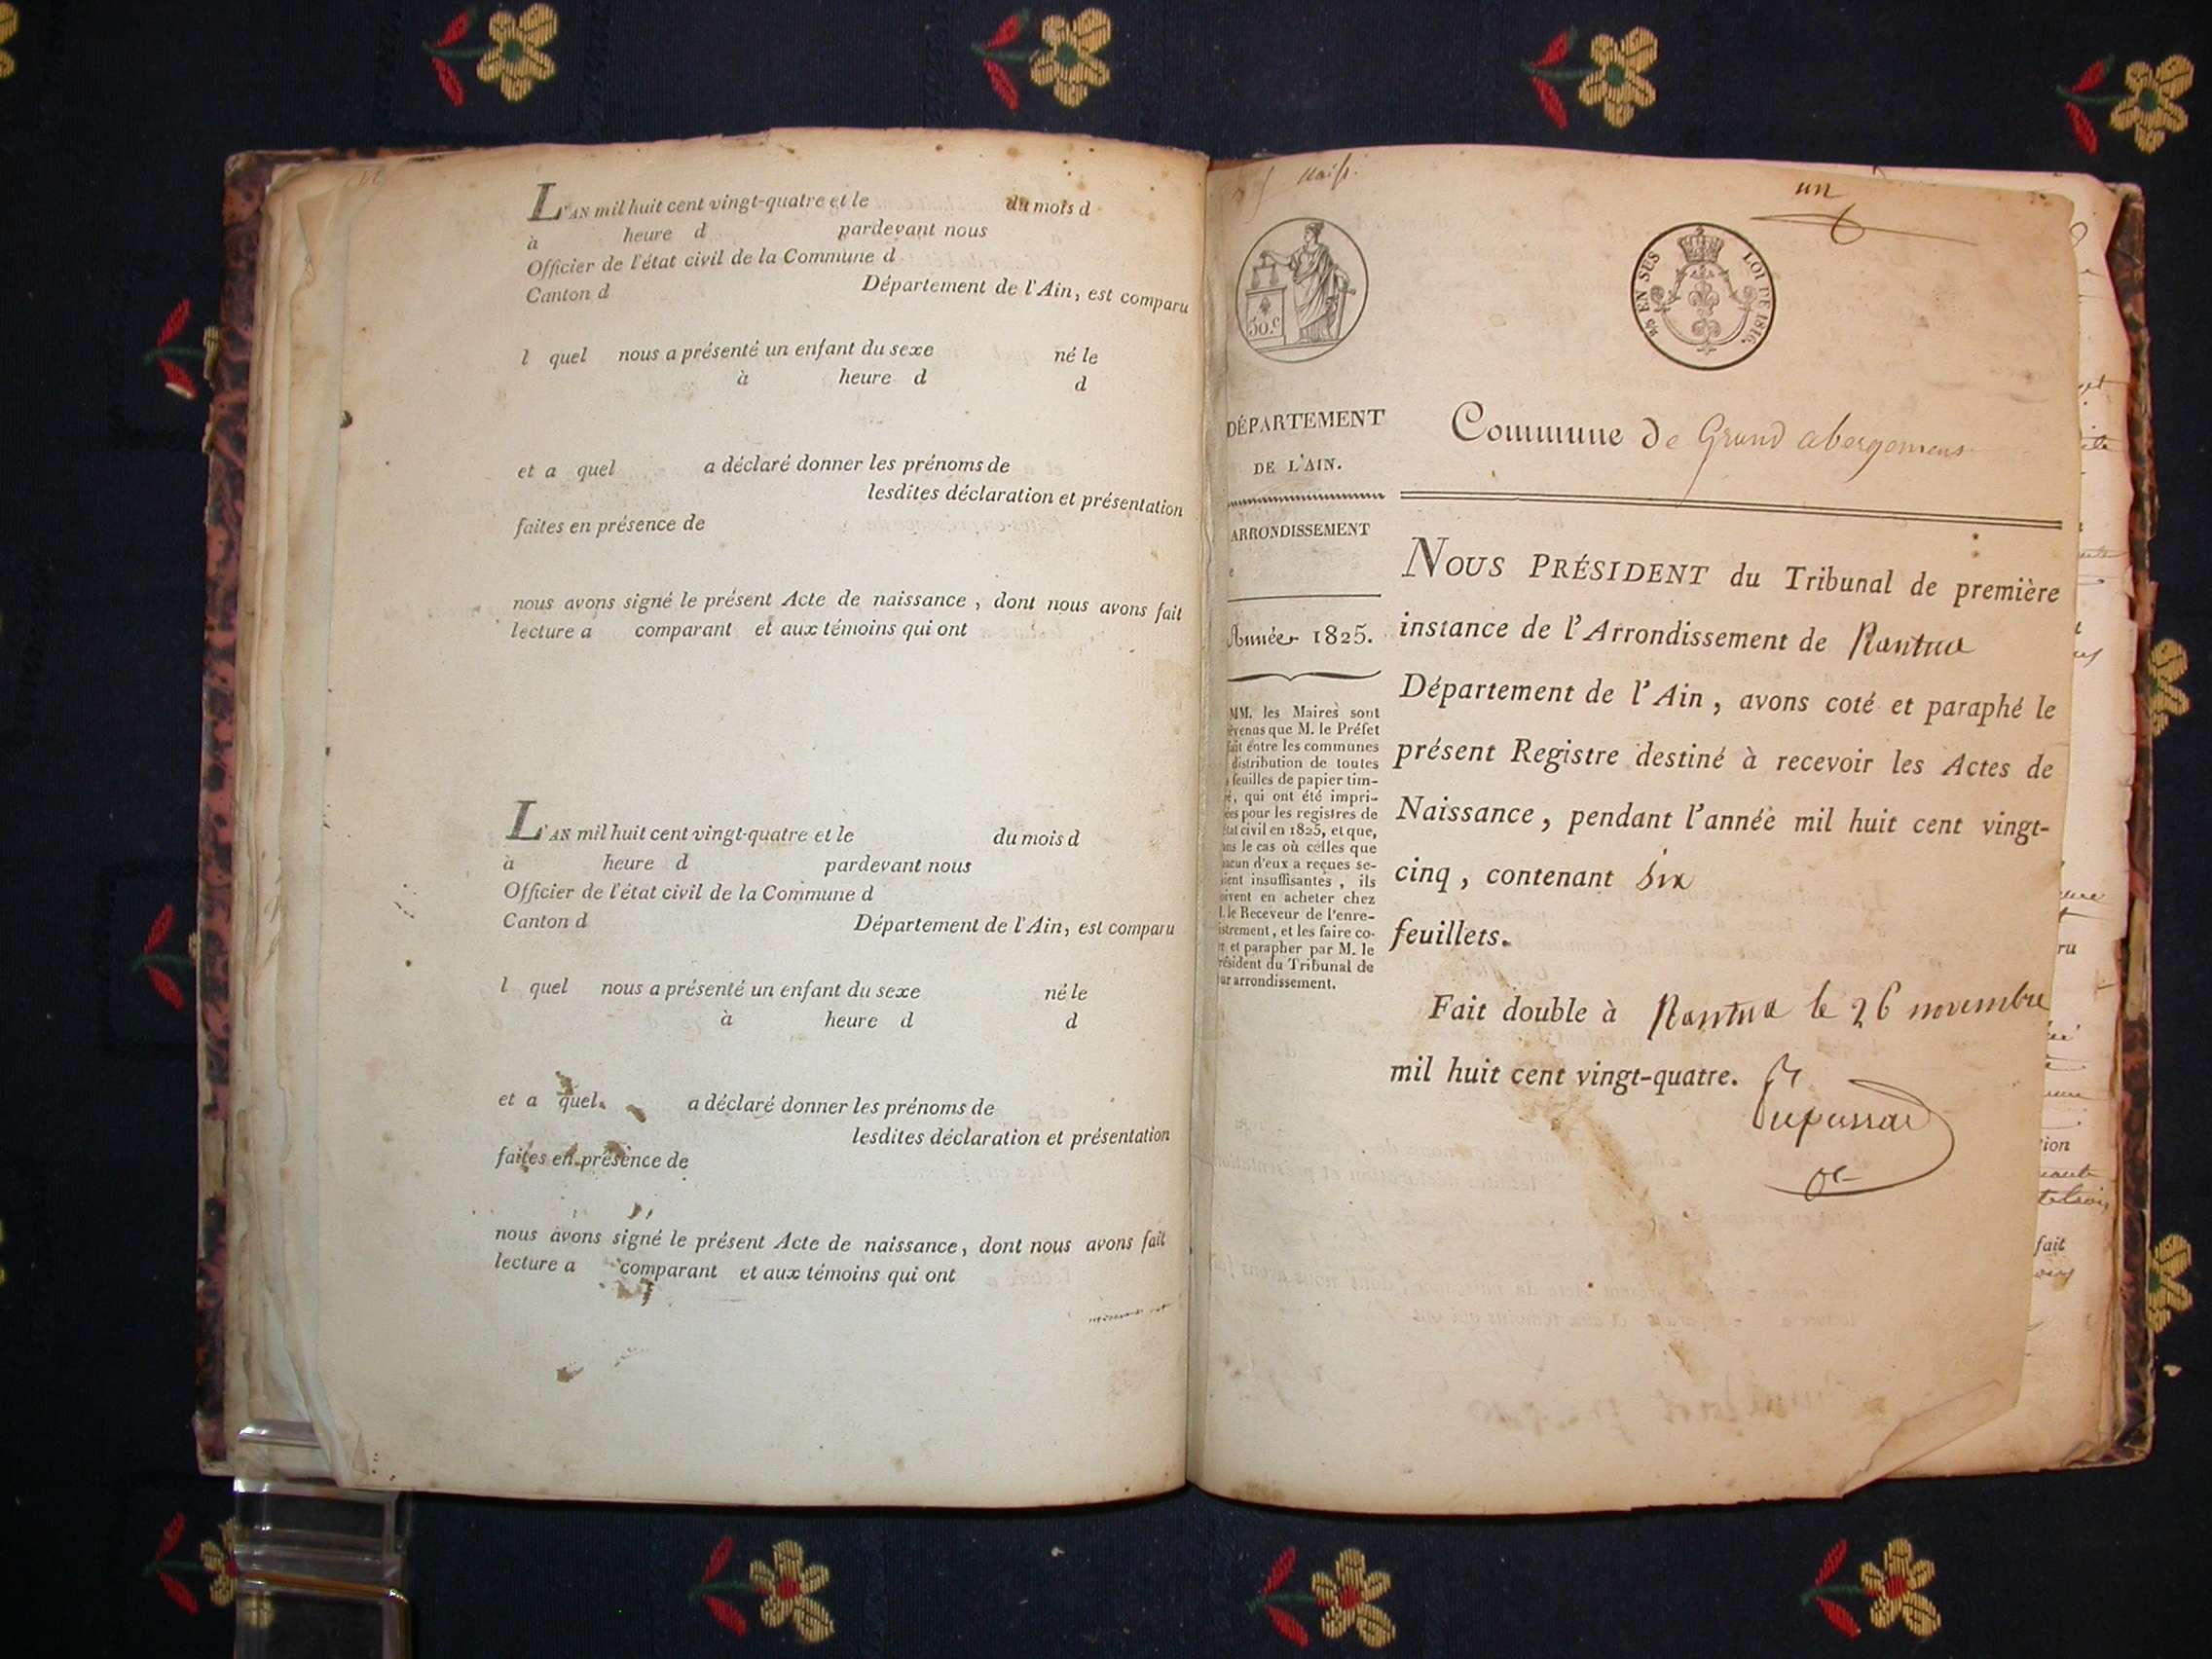 L'AN mil huit cent vingt-quatre et le du mois d
à heure d pardevant nous
Officier de l'état civil de la Commune d
Canton d Département de l'Ain, est comparu
l quel nous a présenté un enfant du sexe né le
à heure d d
et a quel a déclaré donner les prénoms de
lesdites déclaration et présentation
faites en présence de
nous avons signé le présent Acte de naissance, dont nous avons fait
lecture a comparant et aux témoins qui ont
L'AN mil huit cent vingt-quatre et le du mois d
à heure d pardevant nous
Officier de l'état civil de la Commune d
Canton d Département de l'Ain, est comparu
l quel nous a présenté un enfant du sexe né le
à heure d d
et a quel a déclaré donner les prénoms de
lesdites déclaration et présentation
faites en présence de
nous avons signé le présent Acte de naissance, dont nous avons fait
lecture a comparant et aux témoins qui ont
un
50.c
EN SUS LOI DE 1816.
DÉPARTEMENT
DE L'AIN.
ARRONDISSEMENT
Année 1825.
MM. les Maires sont
que M. le Préfet
entre les communes
distribution de toutes
feuilles de papier tim-
qui ont été impri-
pour les registres de
civil en 1825, et que,
le cas où celles que
d'eux a reçues se-
insuffisantes, ils
en acheter chez
le Receveur de l'enre-
, et les faire co-
et parapher par M. le
du Tribunal de
arrondissement.
Commune de Grand abergement
NOUS PRÉSIDENT du Tribunal de première
instance de l'Arrondissement de Nantua
Département de l'Ain, avons coté et paraphé le
présent Registre destiné à recevoir les Actes de
Naissance, pendant l'année mil huit cent vingt-
cinq, contenant six
feuillets.
Fait double à Nantua le 26 novembre
mil huit cent vingt-quatre.